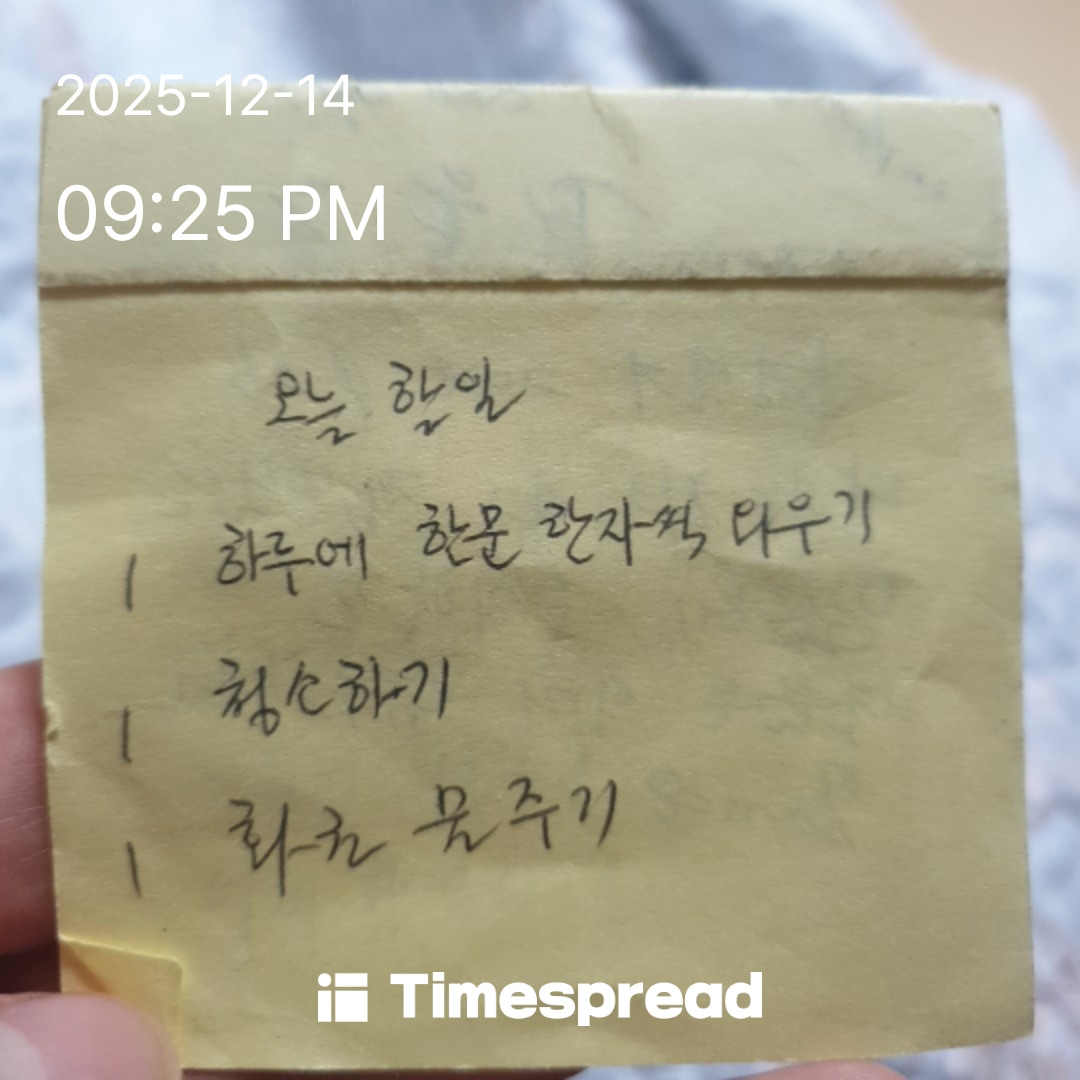 2025-12-14
09:25 PM
오늘 할일
1 하루에 한문 한자씩 외우기
1 청소하기
1 화초 물주기
Timespread